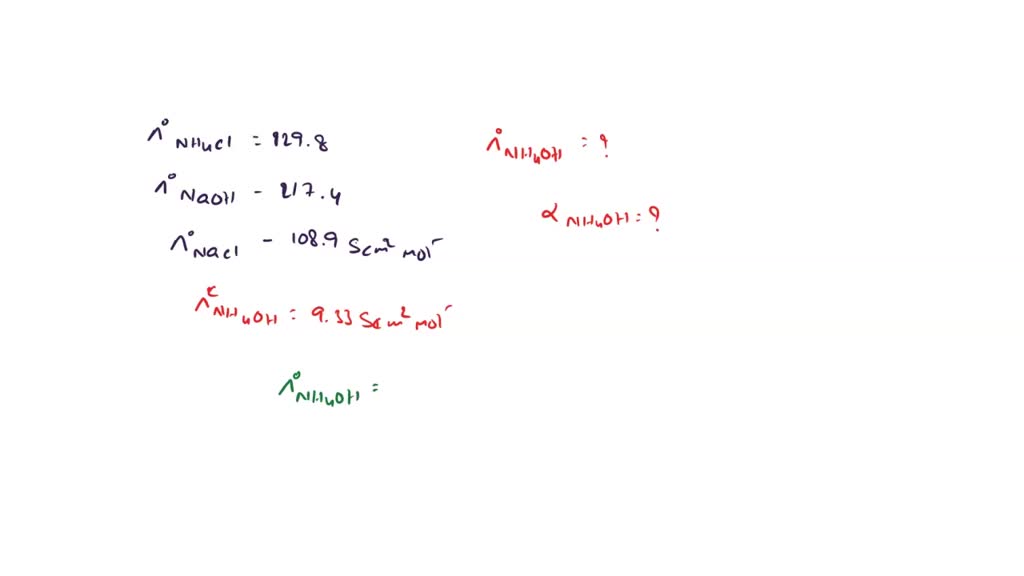 Λ° NH4Cl = 129.8
Λ° NaOH - 217.4
Λ° NaCl - 108.9 Scm² mol⁻
Λᶜ NH4OH = 9.33 Scm² mol⁻
Λ° NH4OH =
Λ° NH4OH = ?
α NH4OH = ?